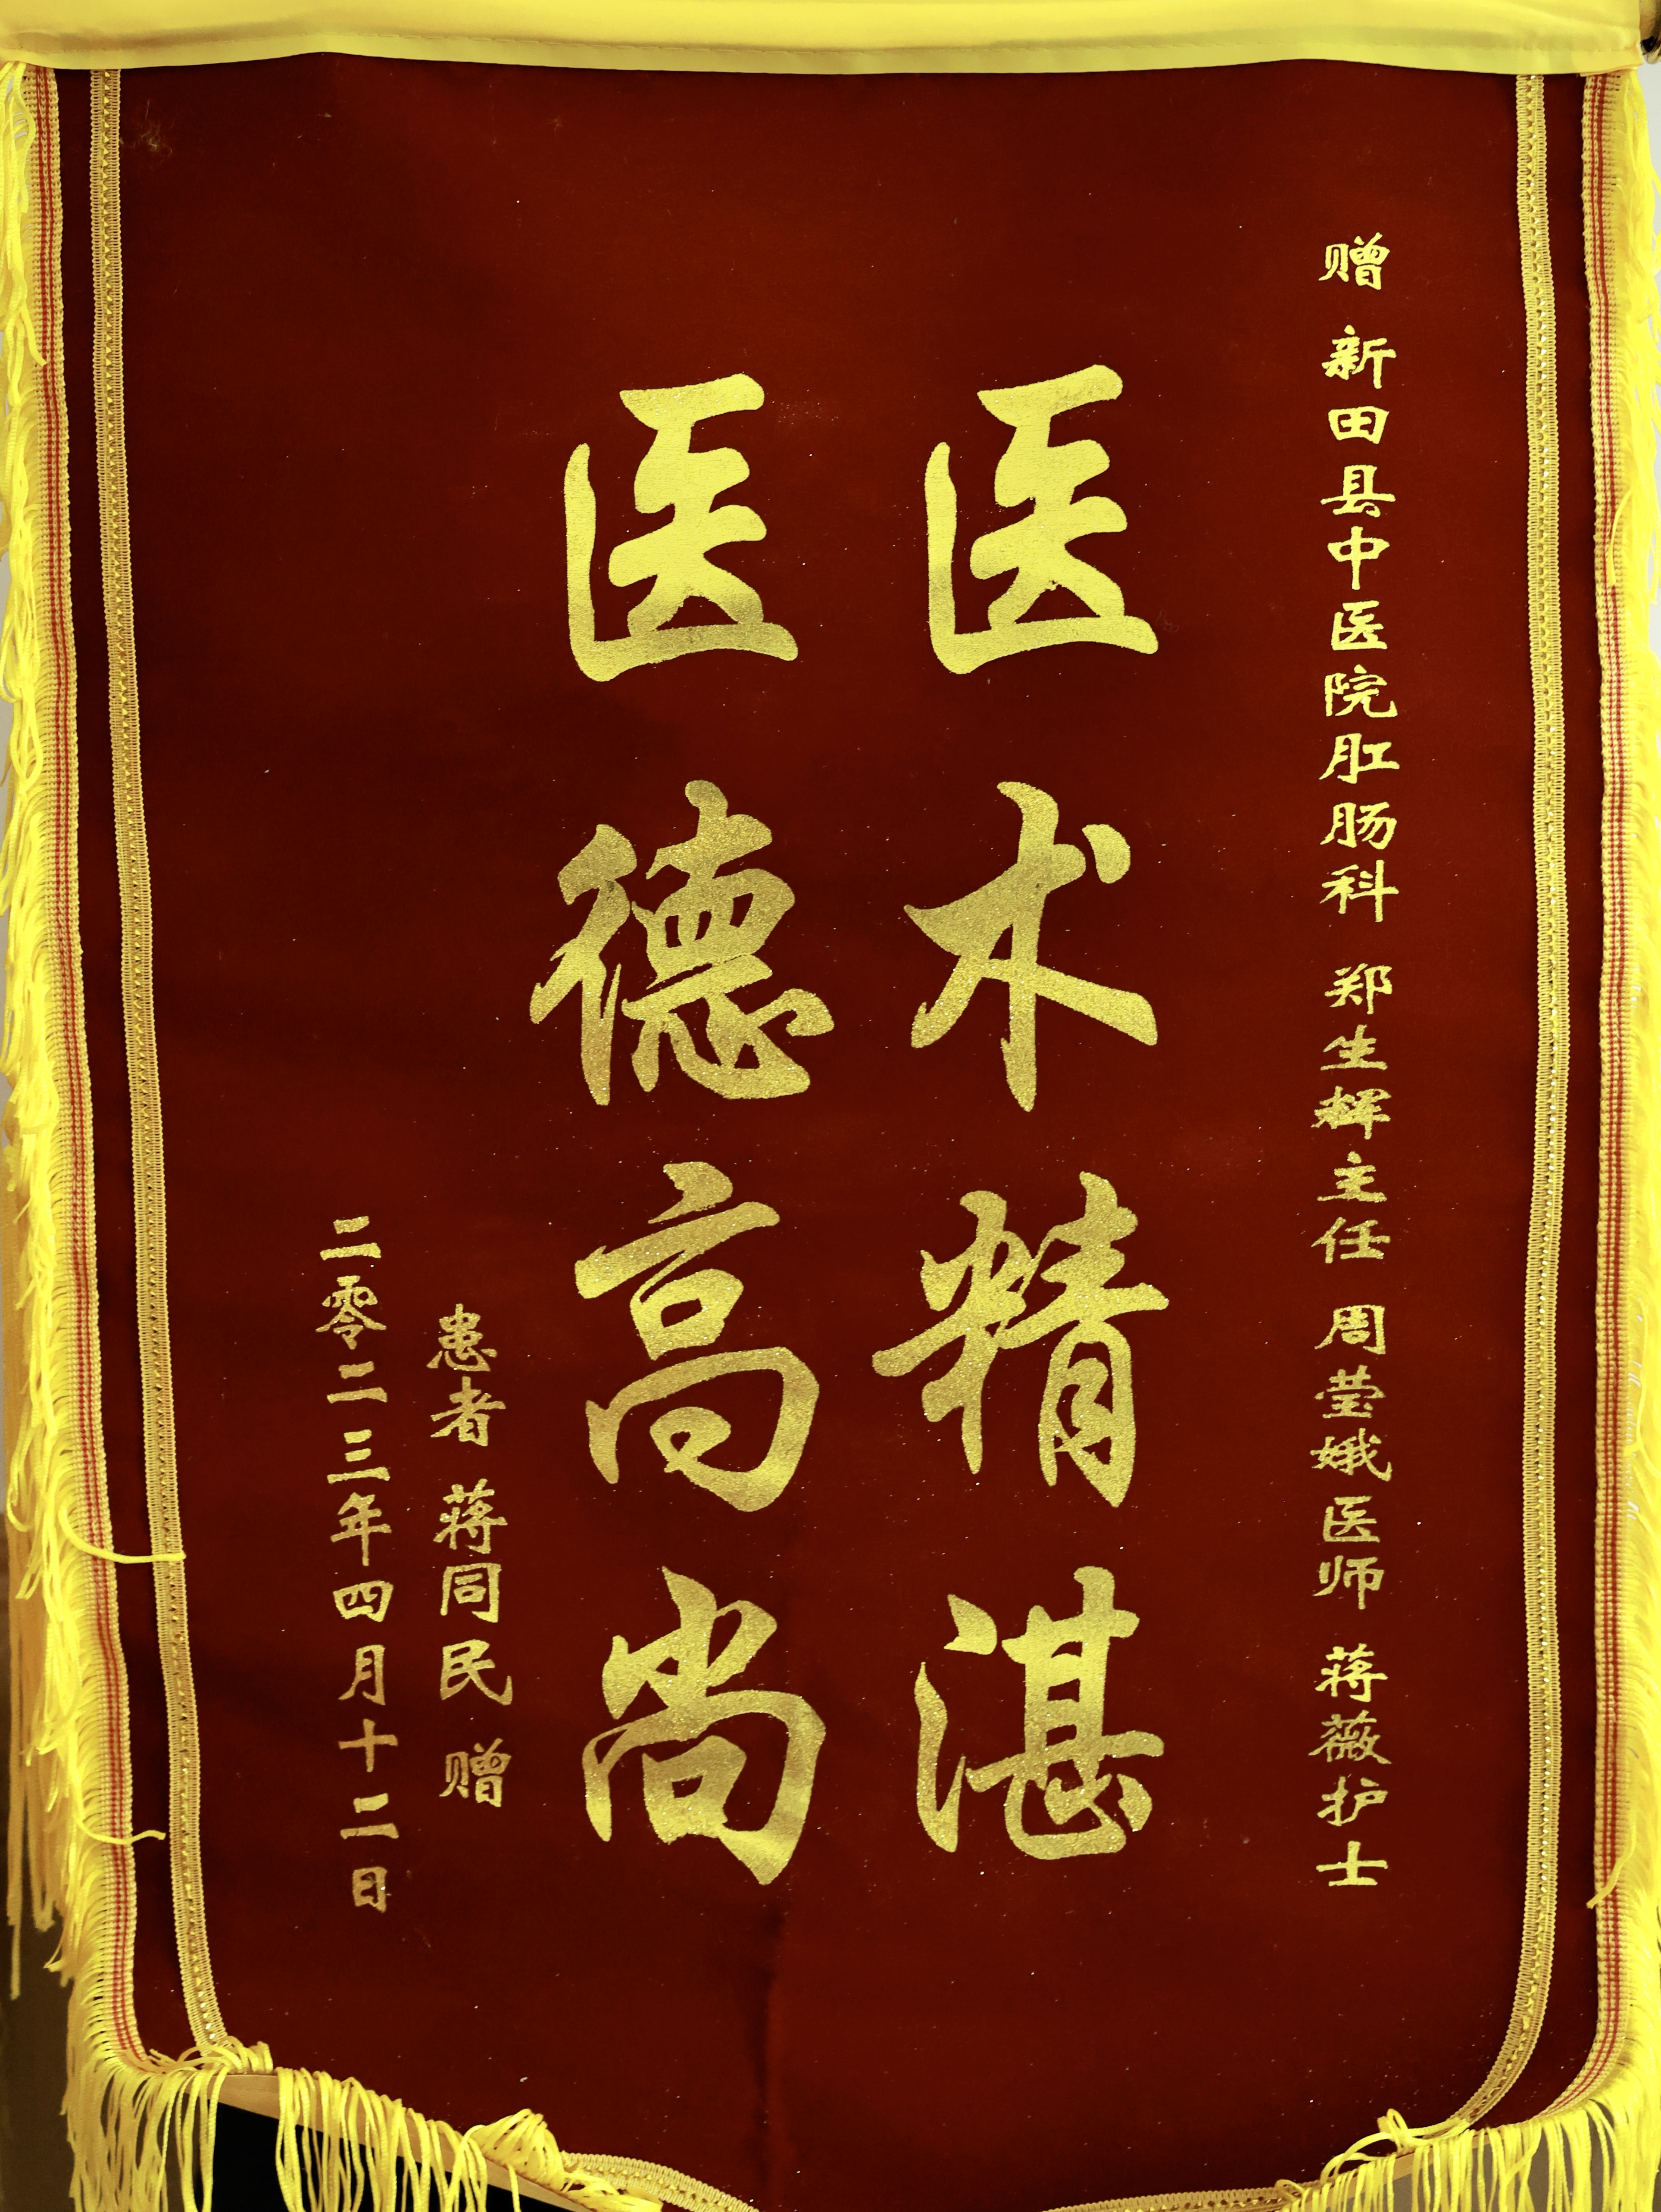 赠 新田县中医院肛肠科 郑生辉主任 周莹娥医师 蒋薇护士
医术精湛
医德高尚
患者 蒋同民 赠
二零二三年四月十二日